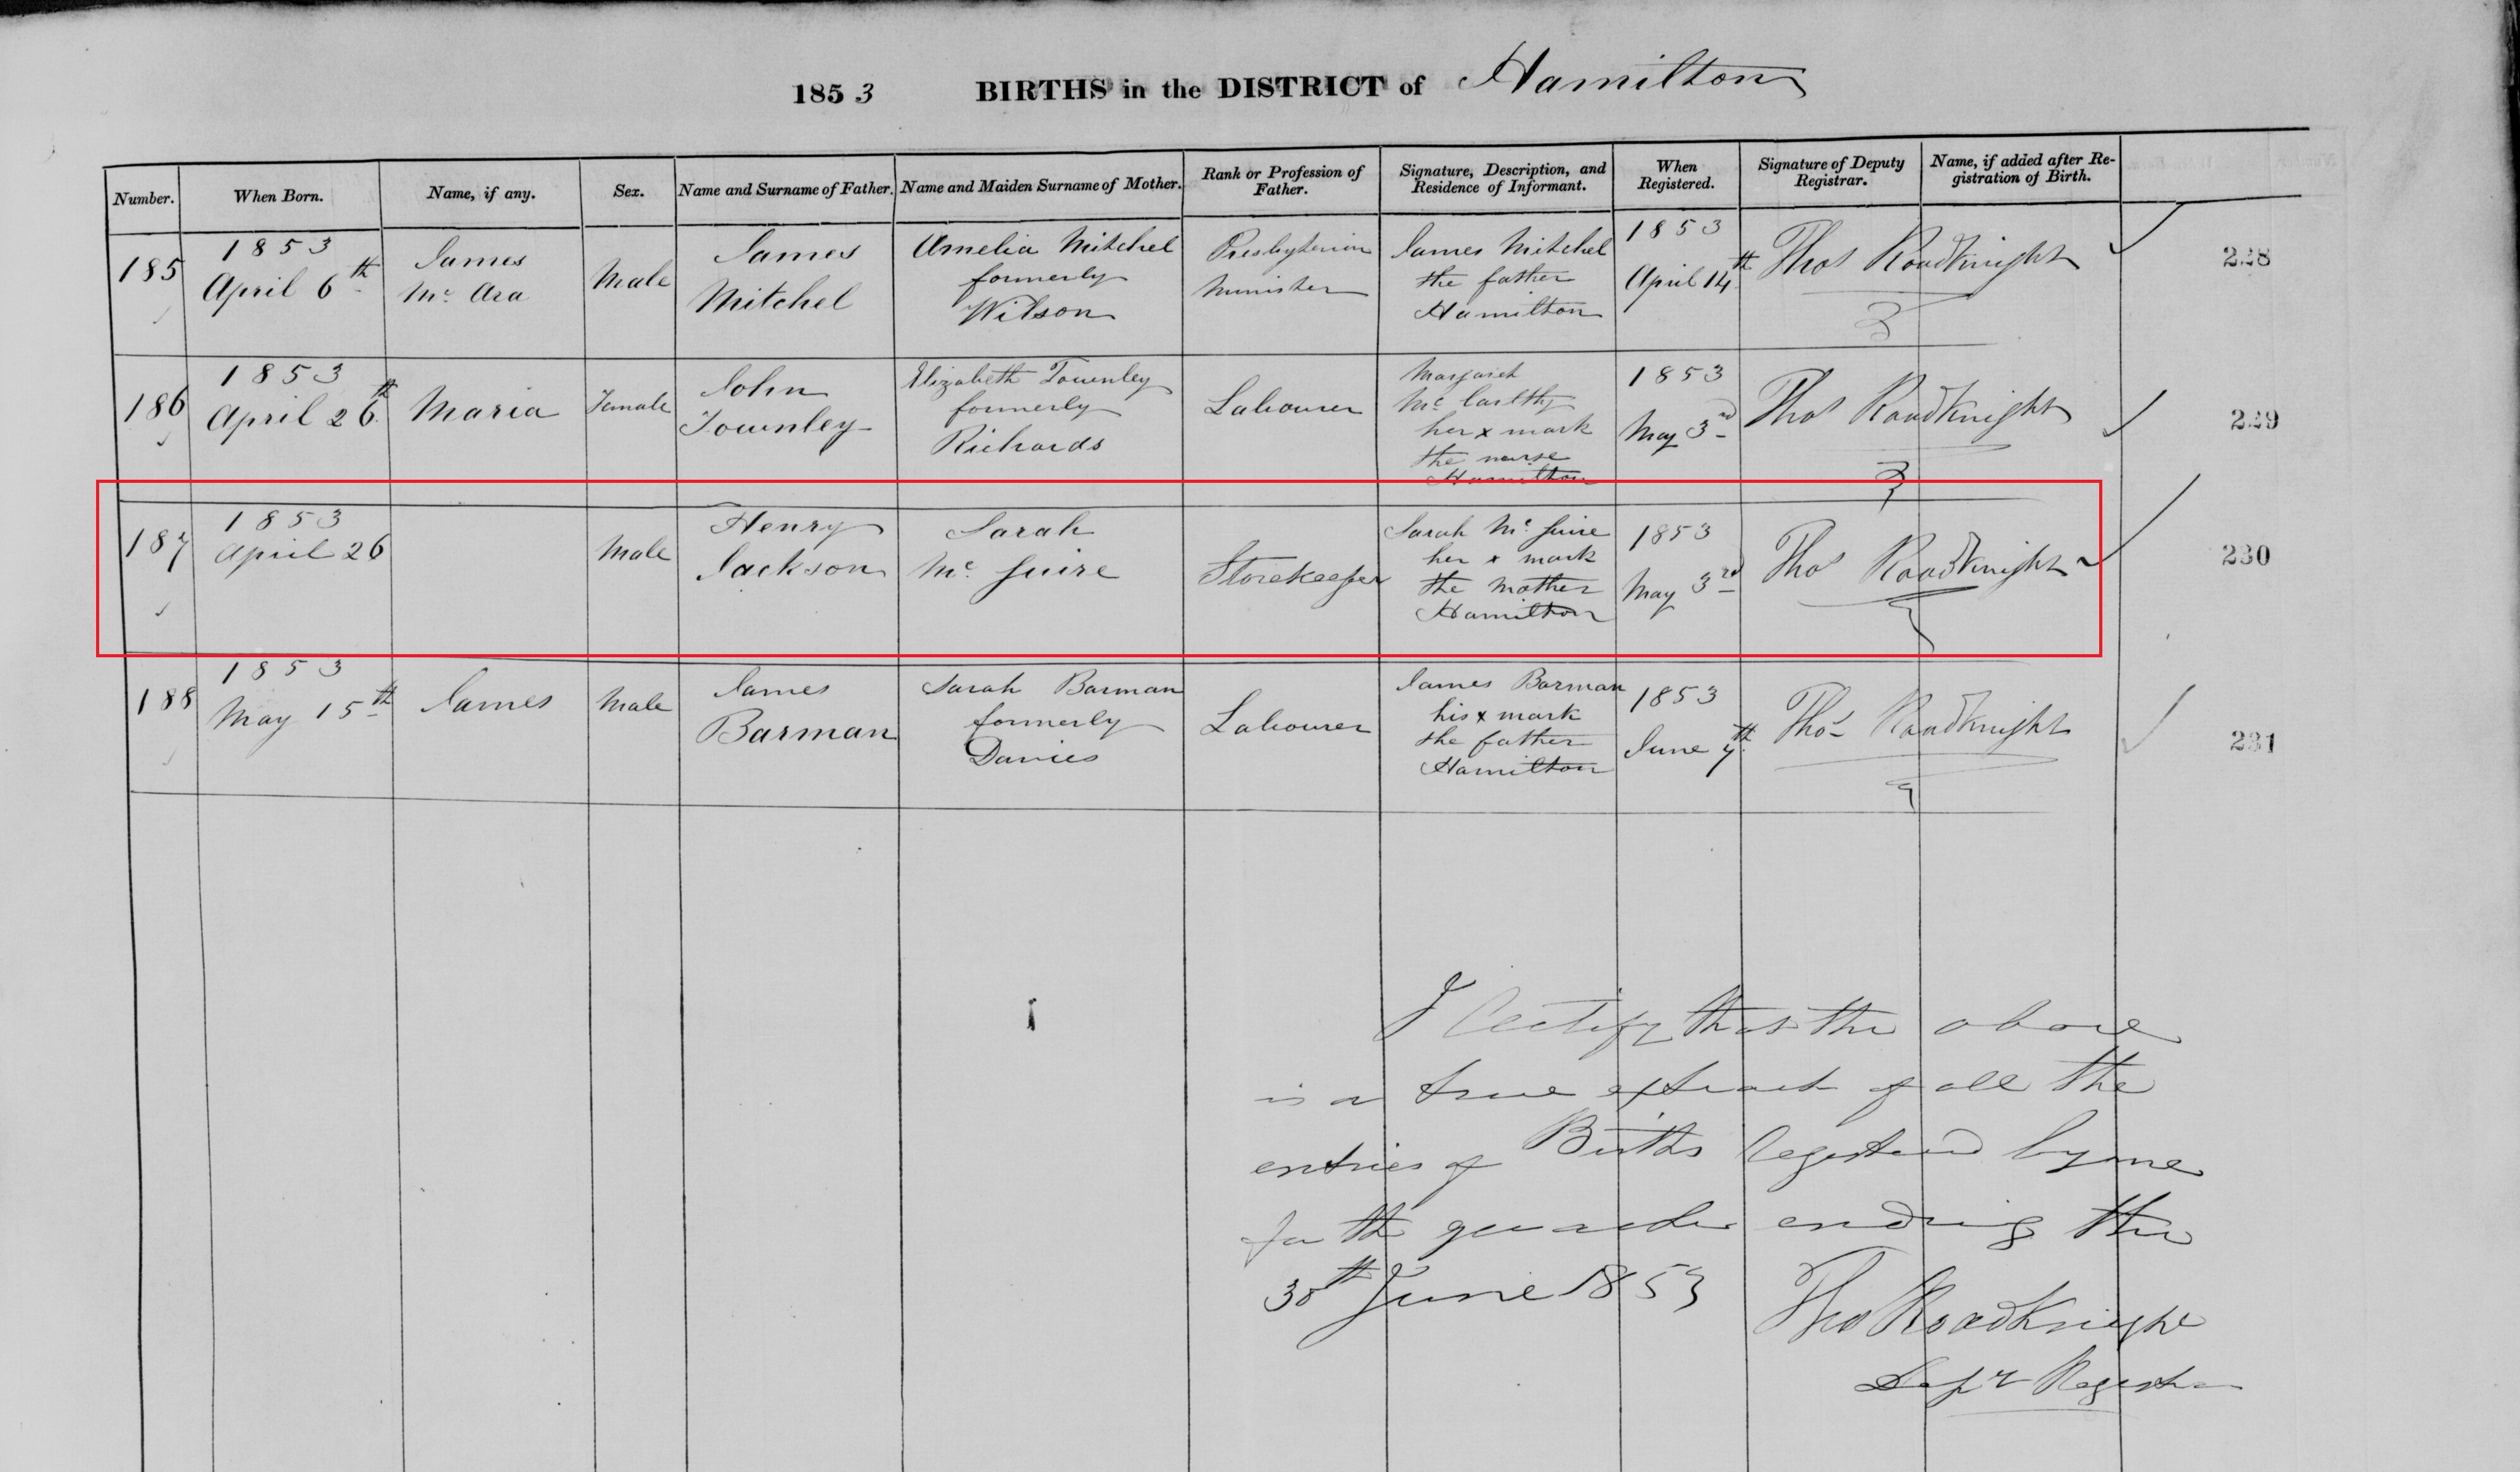 1853 BIRTHS in the DISTRICT of Hamilton
Number. When Born. Name, if any. Sex. Name and Surname of Father. Name and Maiden Surname of Mother. Rank or Profession of Father. Signature, Description, and Residence of Informant. When Registered. Signature of Deputy Registrar. Name, if added after Registration of Birth.
185 1853 April 6th James Mc Ara Male James Mitchel Amelia Mitchel formerly Wilson Presbyterian Minister James Mitchel the father Hamilton 1853 April 14th Thos Roadknight 228
186 1853 April 26th Maria Female John Townley Elizabeth Townley formerly Richards Labourer Margaret Mc Carthy her x mark the nurse Hamilton 1853 May 3rd Thos Roadknight 229
187 1853 April 26 Male Henry Jackson Sarah Mc Guire Storekeeper Sarah Mc Guire her x mark the Mother Hamilton 1853 May 3rd Thos Roadknight 230
188 1853 May 15th James Male James Barman Sarah Barman formerly Davies Labourer James Barman his x mark the father Hamilton 1853 June 7th Thos Roadknight 231
I Certify that the above
is a true extract of all the
entries of Births Registered by me
for the quarter ending the
30th June 1853 Thos Roadknight
Depy Registrar